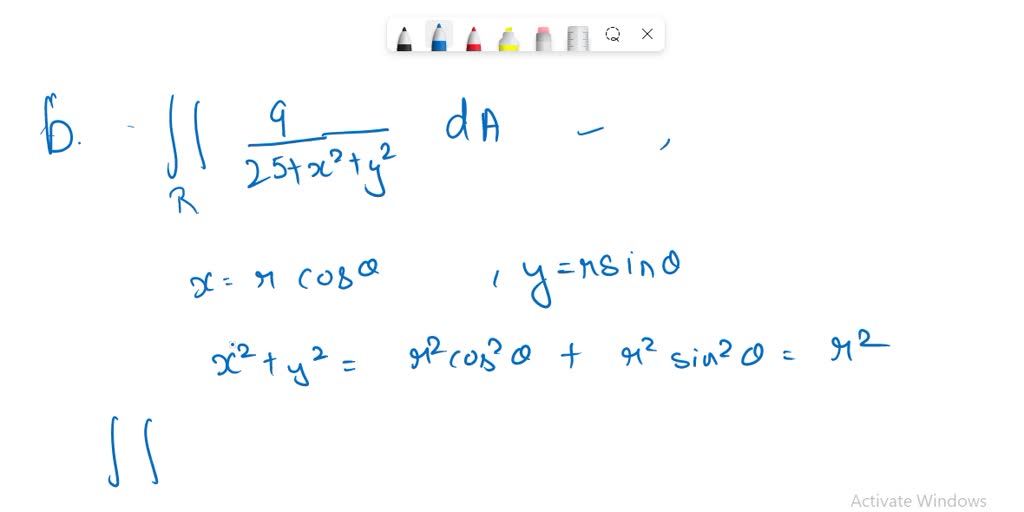 b. ∬_R 9/(25+x²+y²) dA – ,
x = r cosθ , y = r sinθ
x² + y² = r² cos² θ + r² sin² θ = r²
∬
Activate Windows